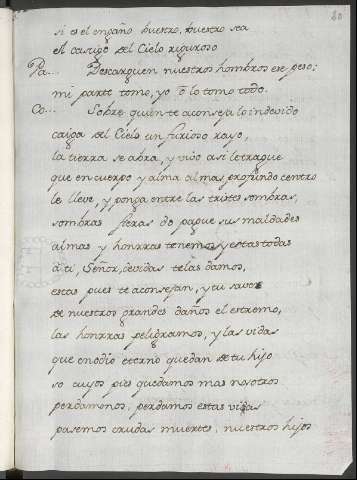 20
si es el engaño vuestro, vuestro sea
el castigo del Cielo riguroso
Pa... Descarguen nuestros hombros ese peso;
mi parte tomo, yo ò lo tomo todo.
Co... Sobre quien te aconseja lo indevido
caiga del Cielo un furioso rayo,
la tierra se abra, y vivo asi le trague
que en cuerpo y alma al mas profundo centro
le lleve, y ponga entre las tristes sombras,
sombras fieras do pague sus maldades
almas y honrras tenemos y estas todas
à ti, Señor, devidas te las damos,
estas pues te aconsejan, y tu saves
de nuestros grandes daños el estremo,
las honrras peligramos, y las vidas
que en odio eterno quedan de tu hijo
so cuyos pies quedamos mas nosotros
perdamonos, perdamos estas vidas
pasemos crudas muertes, nuestros hijos